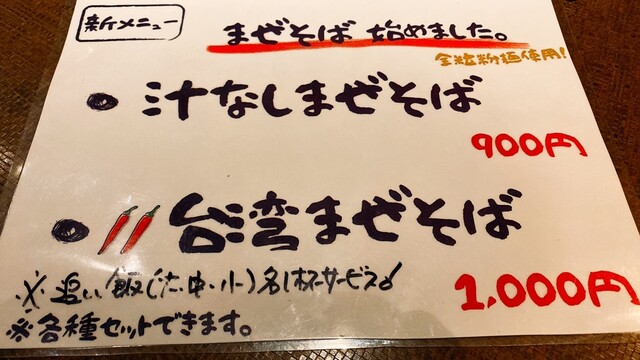 新メニュー
まぜそば 始めました。
全粒粉麺使用!
● 汁なしまぜそば
900円
● 台湾まぜそば
1,000円
※追い飯(大・中・小)
サービス
※各種セットできます。